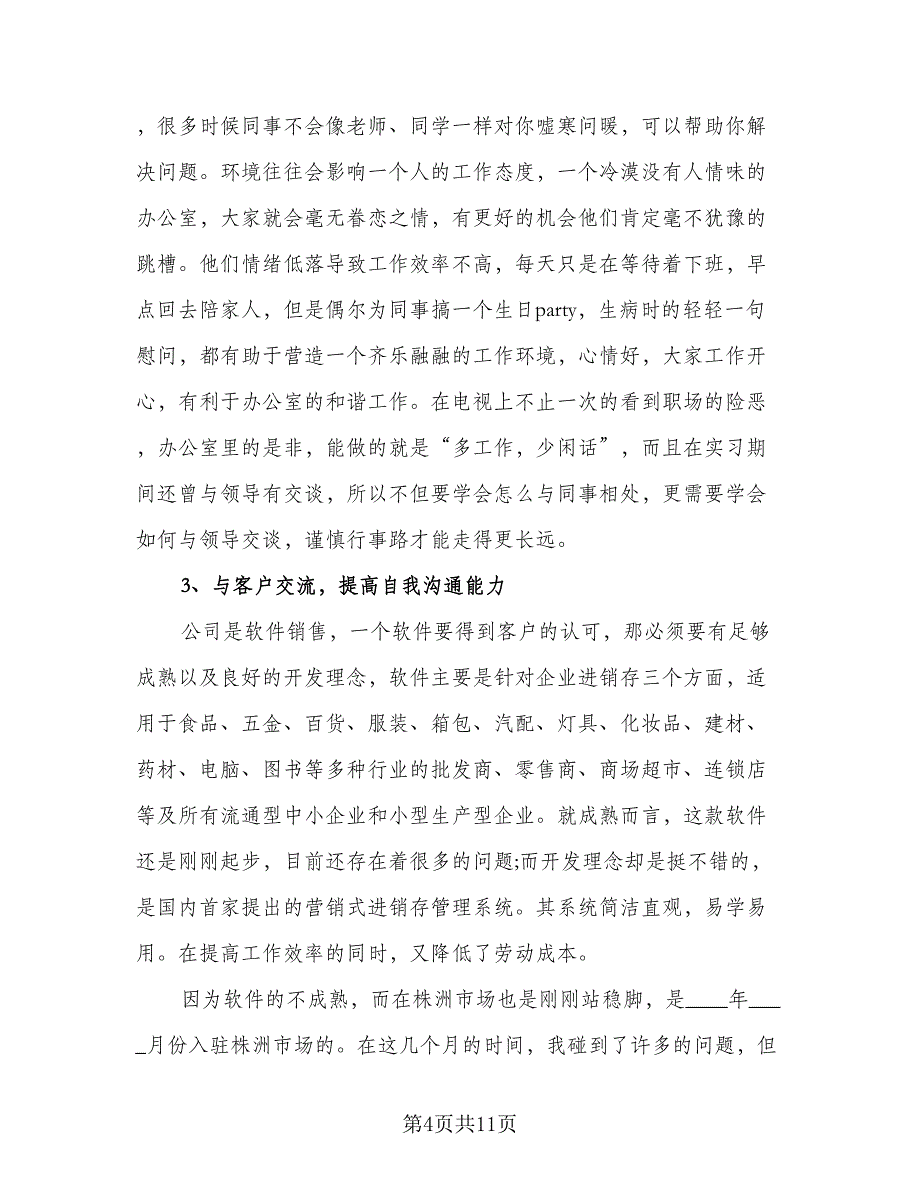 ，很多时候同事不会像老师、同学一样对你嘘寒问暖，可以帮助你解
决问题。环境往往会影响一个人的工作态度，一个冷漠没有人情味的
办公室，大家就会毫无眷恋之情，有更好的机会他们肯定毫不犹豫的
跳槽。他们情绪低落导致工作效率不高，每天只是在等待着下班，早
点回去陪家人，但是偶尔为同事搞一个生日party，生病时的轻轻一句
慰问，都有助于营造一个齐乐融融的工作环境，心情好，大家工作开
心，有利于办公室的和谐工作。在电视上不止一次的看到职场的险恶
，办公室里的是非，能做的就是“多工作，少闲话”，而且在实习期
间还曾与领导有交谈，所以不但要学会怎么与同事相处，更需要学会
如何与领导交谈，谨慎行事路才能走得更长远。
3、与客户交流，提高自我沟通能力
公司是软件销售，一个软件要得到客户的认可，那必须要有足够
成熟以及良好的开发理念，软件主要是针对企业进销存三个方面，适
用于食品、五金、百货、服装、箱包、汽配、灯具、化妆品、建材、
药材、电脑、图书等多种行业的批发商、零售商、商场超市、连锁店
等及所有流通型中小企业和小型生产型企业。就成熟而言，这款软件
还是刚刚起步，目前还存在着很多的问题;而开发理念却是挺不错的，
是国内首家提出的营销式进销存管理系统。其系统简洁直观，易学易
用。在提高工作效率的同时，又降低了劳动成本。
因为软件的不成熟，而在株洲市场也是刚刚站稳脚，是____年___
_月份入驻株洲市场的。在这几个月的时间，我碰到了许多的问题，但
第4页共11页